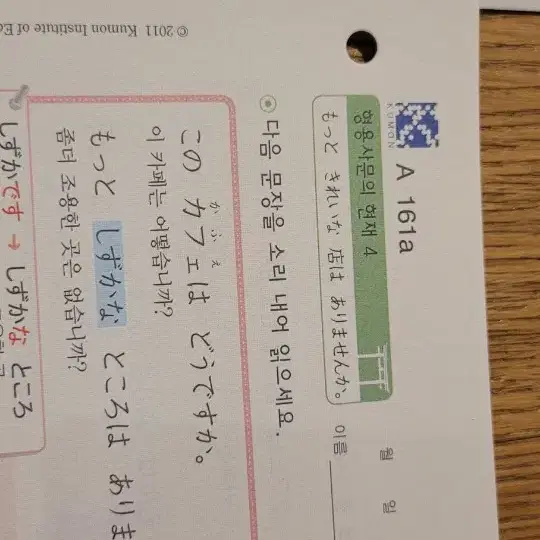 KUMON
A 161a
월 일
형용사문의 현재 4
もっと きれいな 店は ありませんか。
이름
다음 문장을 소리 내어 읽으세요.
かふぇ
この カフェは どうですか。
이 카페는 어떻습니까?
もっと しずかな ところは ありま
좀더 조용한 곳은 없습니까?
しずかです → しずかな ところ
© 2011 Kumon Institute of Ed